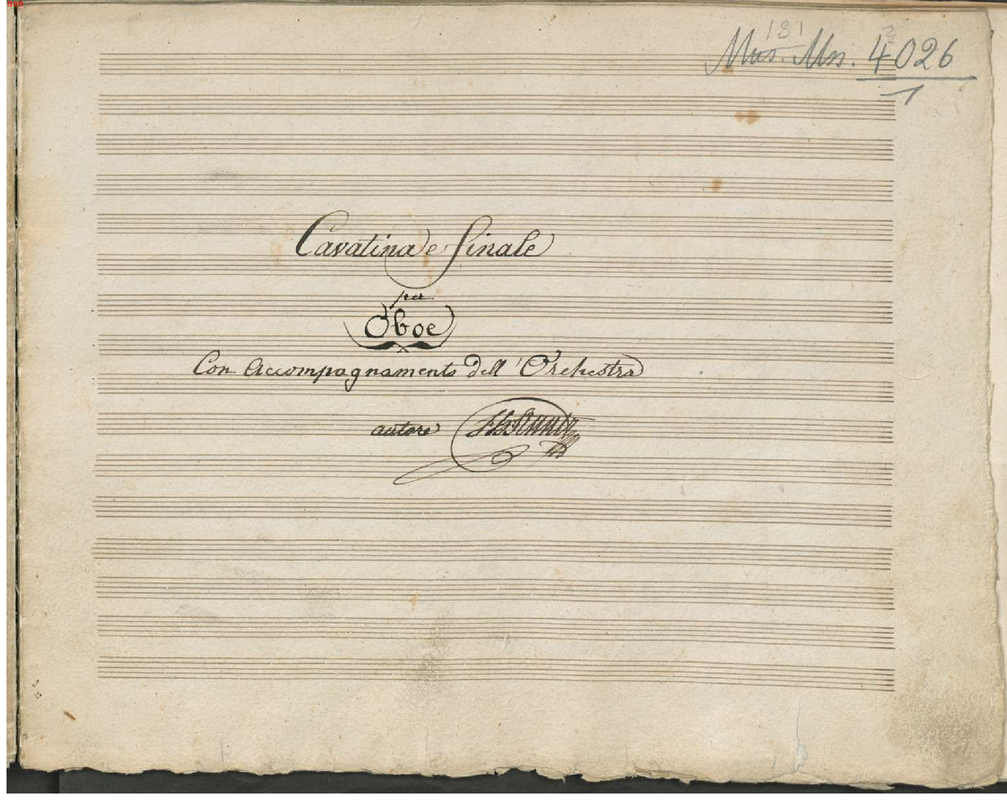 Mus. Mss. 4026
1
Cavatina e Finale
per
Oboe
Con Accompagnamento dell'Orchestra
autore